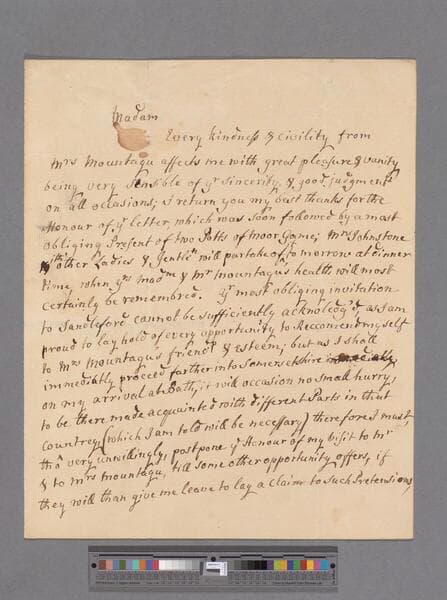 Madam
Every kindness & civility from
Mrs Mountagu affects me with great pleasure & vanity
being very sensible of yr sincerity, & good judgment
on all occasions; I return you my best thanks for the
Honour of yr letter, which was soon followed by a most
obliging Present of two Potts of moor Game; Mrs Johnstone
with other Ladies & Gentlen will partake of it to morrow at dinner
time, when yrs Madm & Mr Mountagus health, will most
certainly be remembred. yr most obliging invitation
to Sandleford cannot be sufficiently acknoledg'd, as I am
proud to lay hold of every opportunity to Reccomend myself
to Mrs Mountagus friendp & esteem; but as I shall
immediatly proceed farther into Somersetshire
on my arrival at Bath, it will occasion no small hurry,
to be there made acquainted with different Parts in that
Countrey, (which I am told will be necessary) therefore I must,
tho' very unwillingly, postpone ye Honour of my visit to Mr
& to Mrs Mountagu, till some other opportunity offers, if
they will than give me leave to lay a claim to such Pretensions,